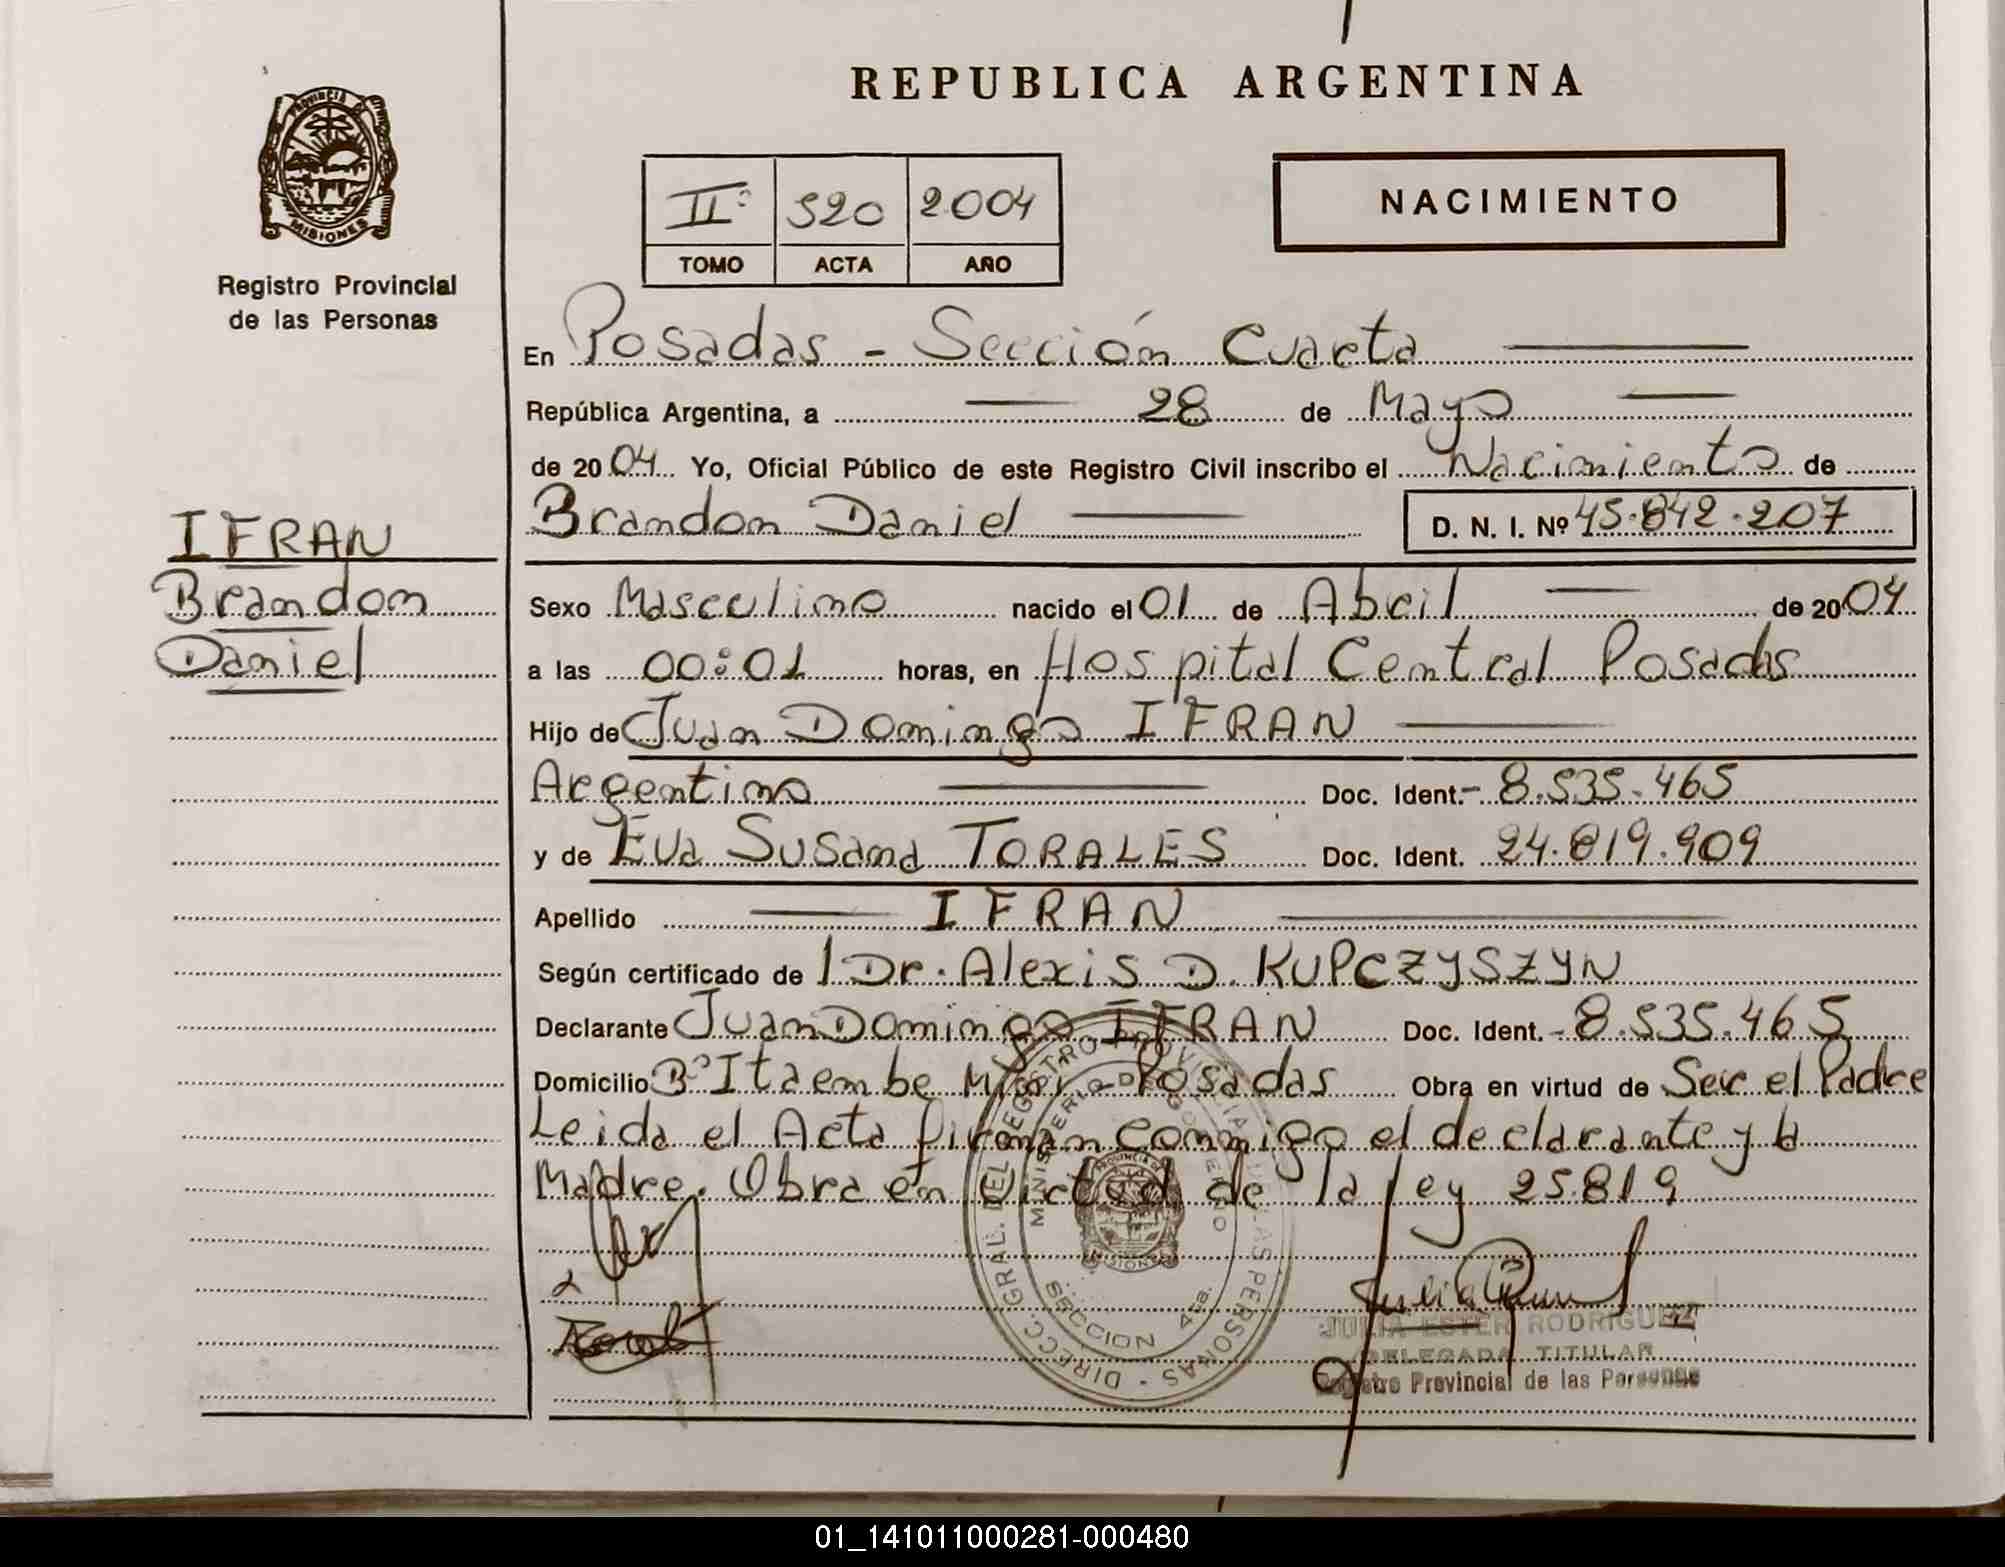 REPUBLICA ARGENTINA
PROVINCIA DE
MISIONES
Registro Provincial
de las Personas
NACIMIENTO
IIº 520 2004
TOMO ACTA AÑO
En Posadas - Sección Cuarta
República Argentina, a 28 de Mayo
de 2004 Yo, Oficial Público de este Registro Civil inscribo el Nacimiento de
Brandon Daniel D. N. I. Nº 45.842.207
IFRAN
Brandon
Daniel
Sexo Masculino nacido el 01 de Abril de 2004
a las 00:01 horas, en Hospital Central Posadas
Hijo de Juan Domingo IFRAN
Argentino Doc. Ident.- 8.535.465
y de Eva Susana TORALES Doc. Ident. 24.819.909
Apellido IFRAN
Según certificado de l Dr. Alexis D. KUPCZYSZYN
Declarante Juan Domingo IFRAN Doc. Ident.- 8.535.465
Domicilio Bº Itaembe Mini - Posadas Obra en virtud de Ser el Padre
Leida el Acta firman conmigo el declarante y la
Madre. Obra en virtud de la ley 25.819
DIRECC. GRAL. DEL REGISTRO PROVINCIAL DE LAS PERSONAS
MINISTERIO DE GOBIERNO
PROVINCIA DE
MISIONES
SECCION 4ta.
JULIA ESTER RODRIGUEZ
DELEGADA TITULAR
Registro Provincial de las Personas
01_141011000281-000480